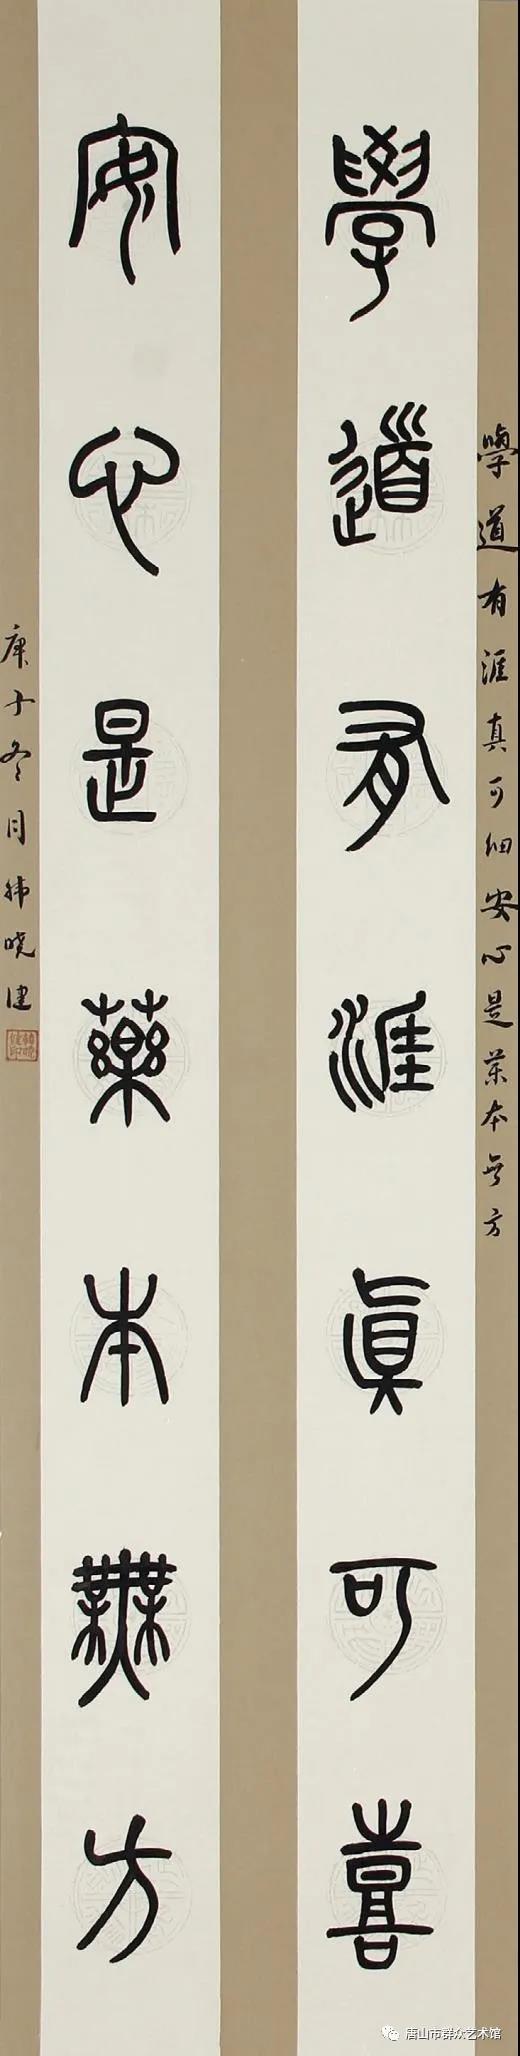 學道有涯真可細安心是药本无方
學道有涯眞可喜
安心是藥本無方
庚子冬月韩晓健
唐山市群众艺术馆